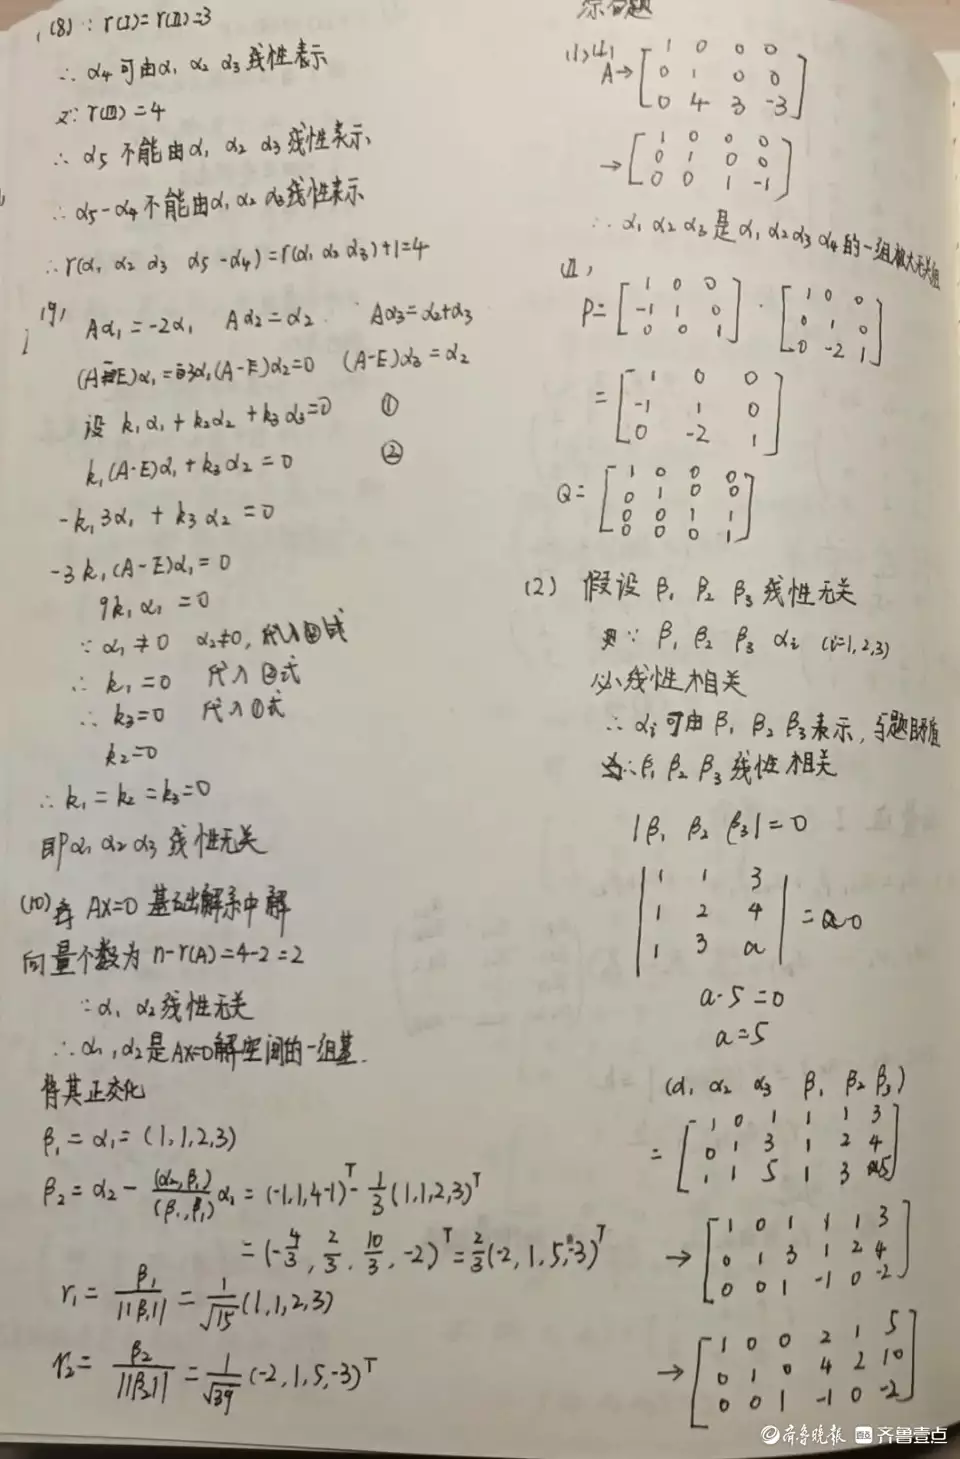 (8) ∵ r(I)=r(II)=3
∴ α4 可由α1 α2 α3 线性表示
又∵ r(III)=4
∴ α5 不能由 α1 α2 α3 线性表示
∴ α5-α4 不能由α1 α2 α3线性表示
∴ r(α1 α2 α3 α5-α4)=r(α1 α2 α3)+1=4
(9) Aα1=-2α1 Aα2=α2 Aα3=α2+α3
(A-E)α1=-3α1 (A-E)α2=0 (A-E)α3=α2
设 k1α1+k2α2+k3α3=0 ①
k1(A-E)α1+k3α2=0 ②
-k1 3α1+k3α2=0
-3k1(A-E)α1=0
9k1α1=0
∵ α1≠0 α2≠0, 代入②式
∴ k1=0 代入②式
∴ k3=0 代入①式
k2=0
∴ k1=k2=k3=0
即α1 α2 α3 线性无关
(10) AX=0 基础解系中解
向量个数为 n-r(A)=4-2=2
∵α1 α2线性无关
∴ α1,α2是AX=0解空间的一组基.
将其正交化
β1=α1=(1,1,2,3)
β2=α2-(α2,β1)/(β1,β1)α1=(-1,1,4-1)^T-1/3(1,1,2,3)^T
=(-4/3, 2/3, 10/3, -2)^T=2/3(-2,1,5,-3)^T
r1=β1/||β1||=1/√15(1,1,2,3)
r2=β2/||β2||=1/√39(-2,1,5,-3)^T
综合题
(1)(I)
A→[1 0 0 0
0 1 0 0
0 4 3 -3]
→[1 0 0 0
0 1 0 0
0 0 1 -1]
∴ α1 α2 α3 是 α1 α2 α3 α4 的一组极大无关组
(II)
P=[1 0 0
-1 1 0
0 0 1]·[1 0 0
0 1 0
0 -2 1]
=[1 0 0
-1 1 0
0 -2 1]
Q=[1 0 0 0
0 1 0 0
0 0 1 1
0 0 0 1]
(2) 假设 β1 β2 β3 线性无关
∵ β1 β2 β3 αi (i=1,2,3)
必线性相关
∴ αi 可由 β1 β2 β3 表示, 与题目矛盾
∴ β1 β2 β3 线性相关
|β1 β2 β3|=0
|1 1 3
1 2 4
1 3 a|=0
a-5=0
a=5
(α1 α2 α3 β1 β2 β3)
=[1 0 1 1 1 3
0 1 3 1 2 4
1 1 5 1 3 5]
→[1 0 1 1 1 3
0 1 3 1 2 4
0 0 1 -1 0 -2]
→[1 0 0 2 1 5
0 1 0 4 2 10
0 0 1 -1 0 -2]
齐鲁晚报 齐鲁壹点